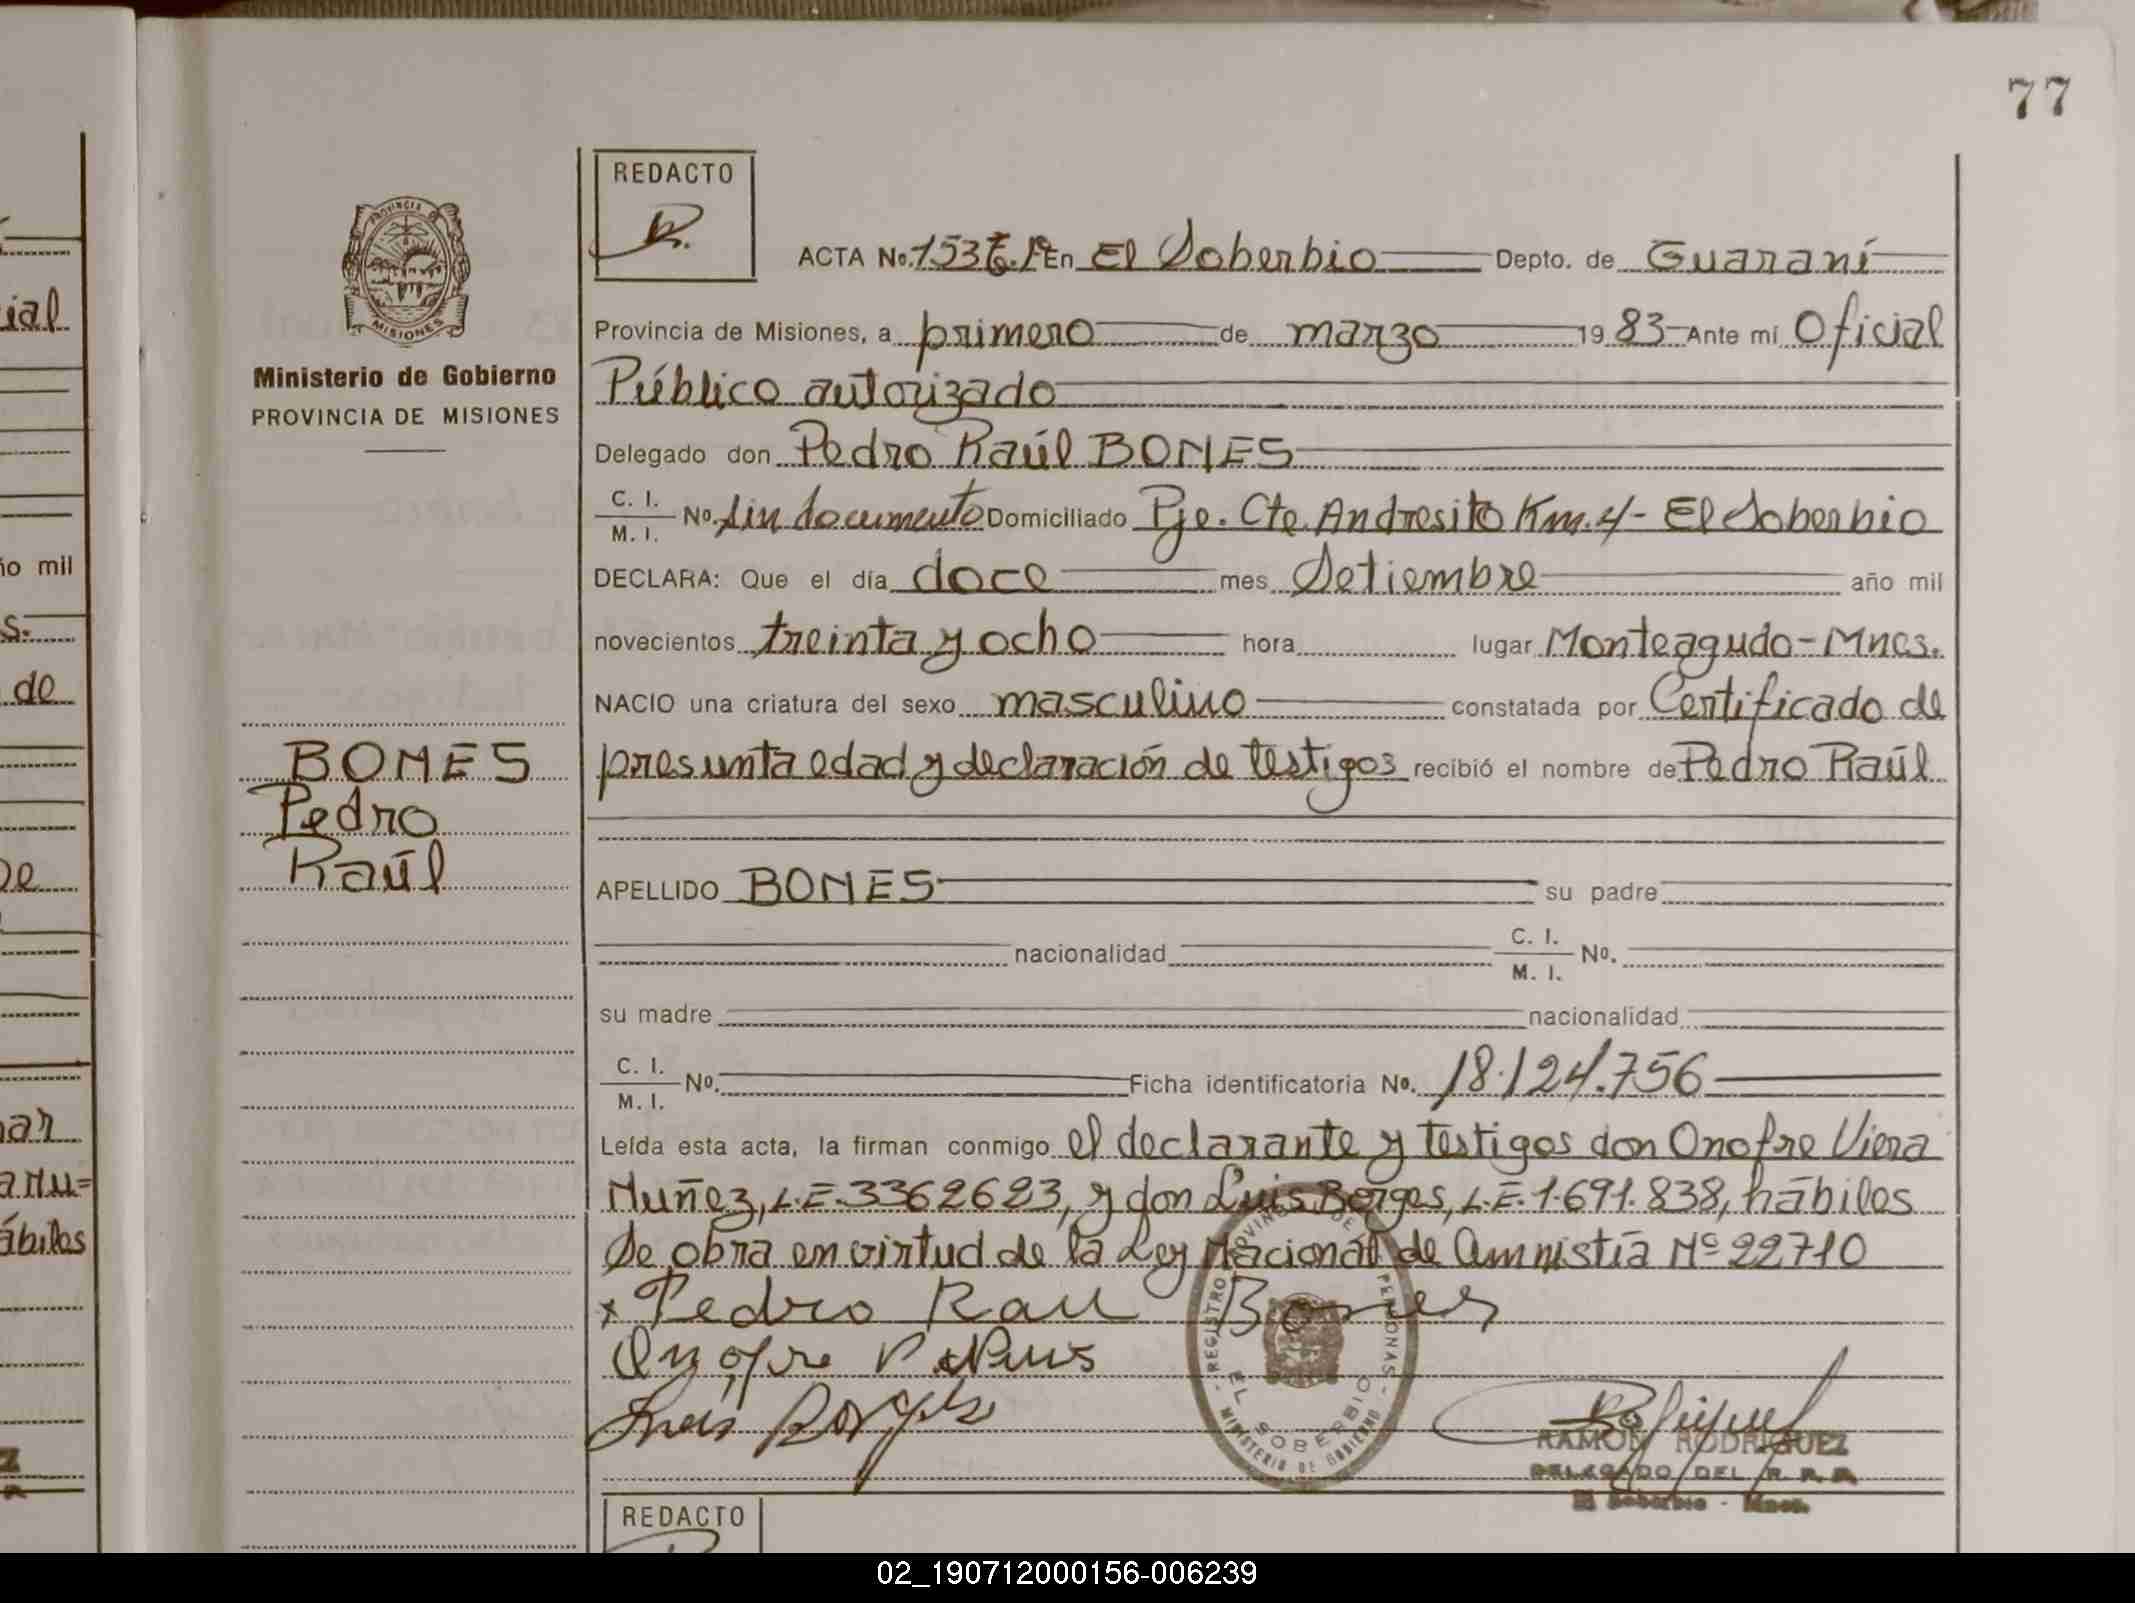 77
REDACTO
ACTA No. 153 En El Soberbio Depto. de Guaraní
Provincia de Misiones, a primero de marzo 19 83 Ante mí Oficial
Público autorizado
Delegado don Pedro Raúl BONES
C. I.
M. I.
No. sin documento Domiciliado Pje. Cte. Andresito Km. 4 - El Soberbio
DECLARA: Que el día doce mes Setiembre año mil
novecientos treinta y ocho hora lugar Monteagudo - Mnes.
NACIO una criatura del sexo masculino constatada por Certificado de
presunta edad y declaración de testigos recibió el nombre de Pedro Raúl
APELLIDO BONES su padre
nacionalidad C. I.
M. I.
No.
su madre nacionalidad
C. I.
M. I.
No. Ficha identificatoria No. 18.124.756
Leída esta acta, la firman conmigo el declarante y testigos don Onofre Viera
Nuñez, L.E. 3362623, y don Luis Borges, L.E. 1.691.838, hábiles
Se obra en virtud de la Ley Nacional de Amnistía Nº 22710
x Pedro Raul Bones
Onofre V
Luis Borges
REGISTRO PROVINCIAL DE PERSONAS
EL SOBERBIO
MINISTERIO DE GOBIERNO
RAMON RODRIGUEZ
DELEGADO DEL R. P. P.
El Soberbio - Mnes.
REDACTO
PROVINCIA DE
MISIONES
Ministerio de Gobierno
PROVINCIA DE MISIONES
BONES
Pedro
Raúl
ial
ño mil
s.
de
hábiles
02_190712000156-006239